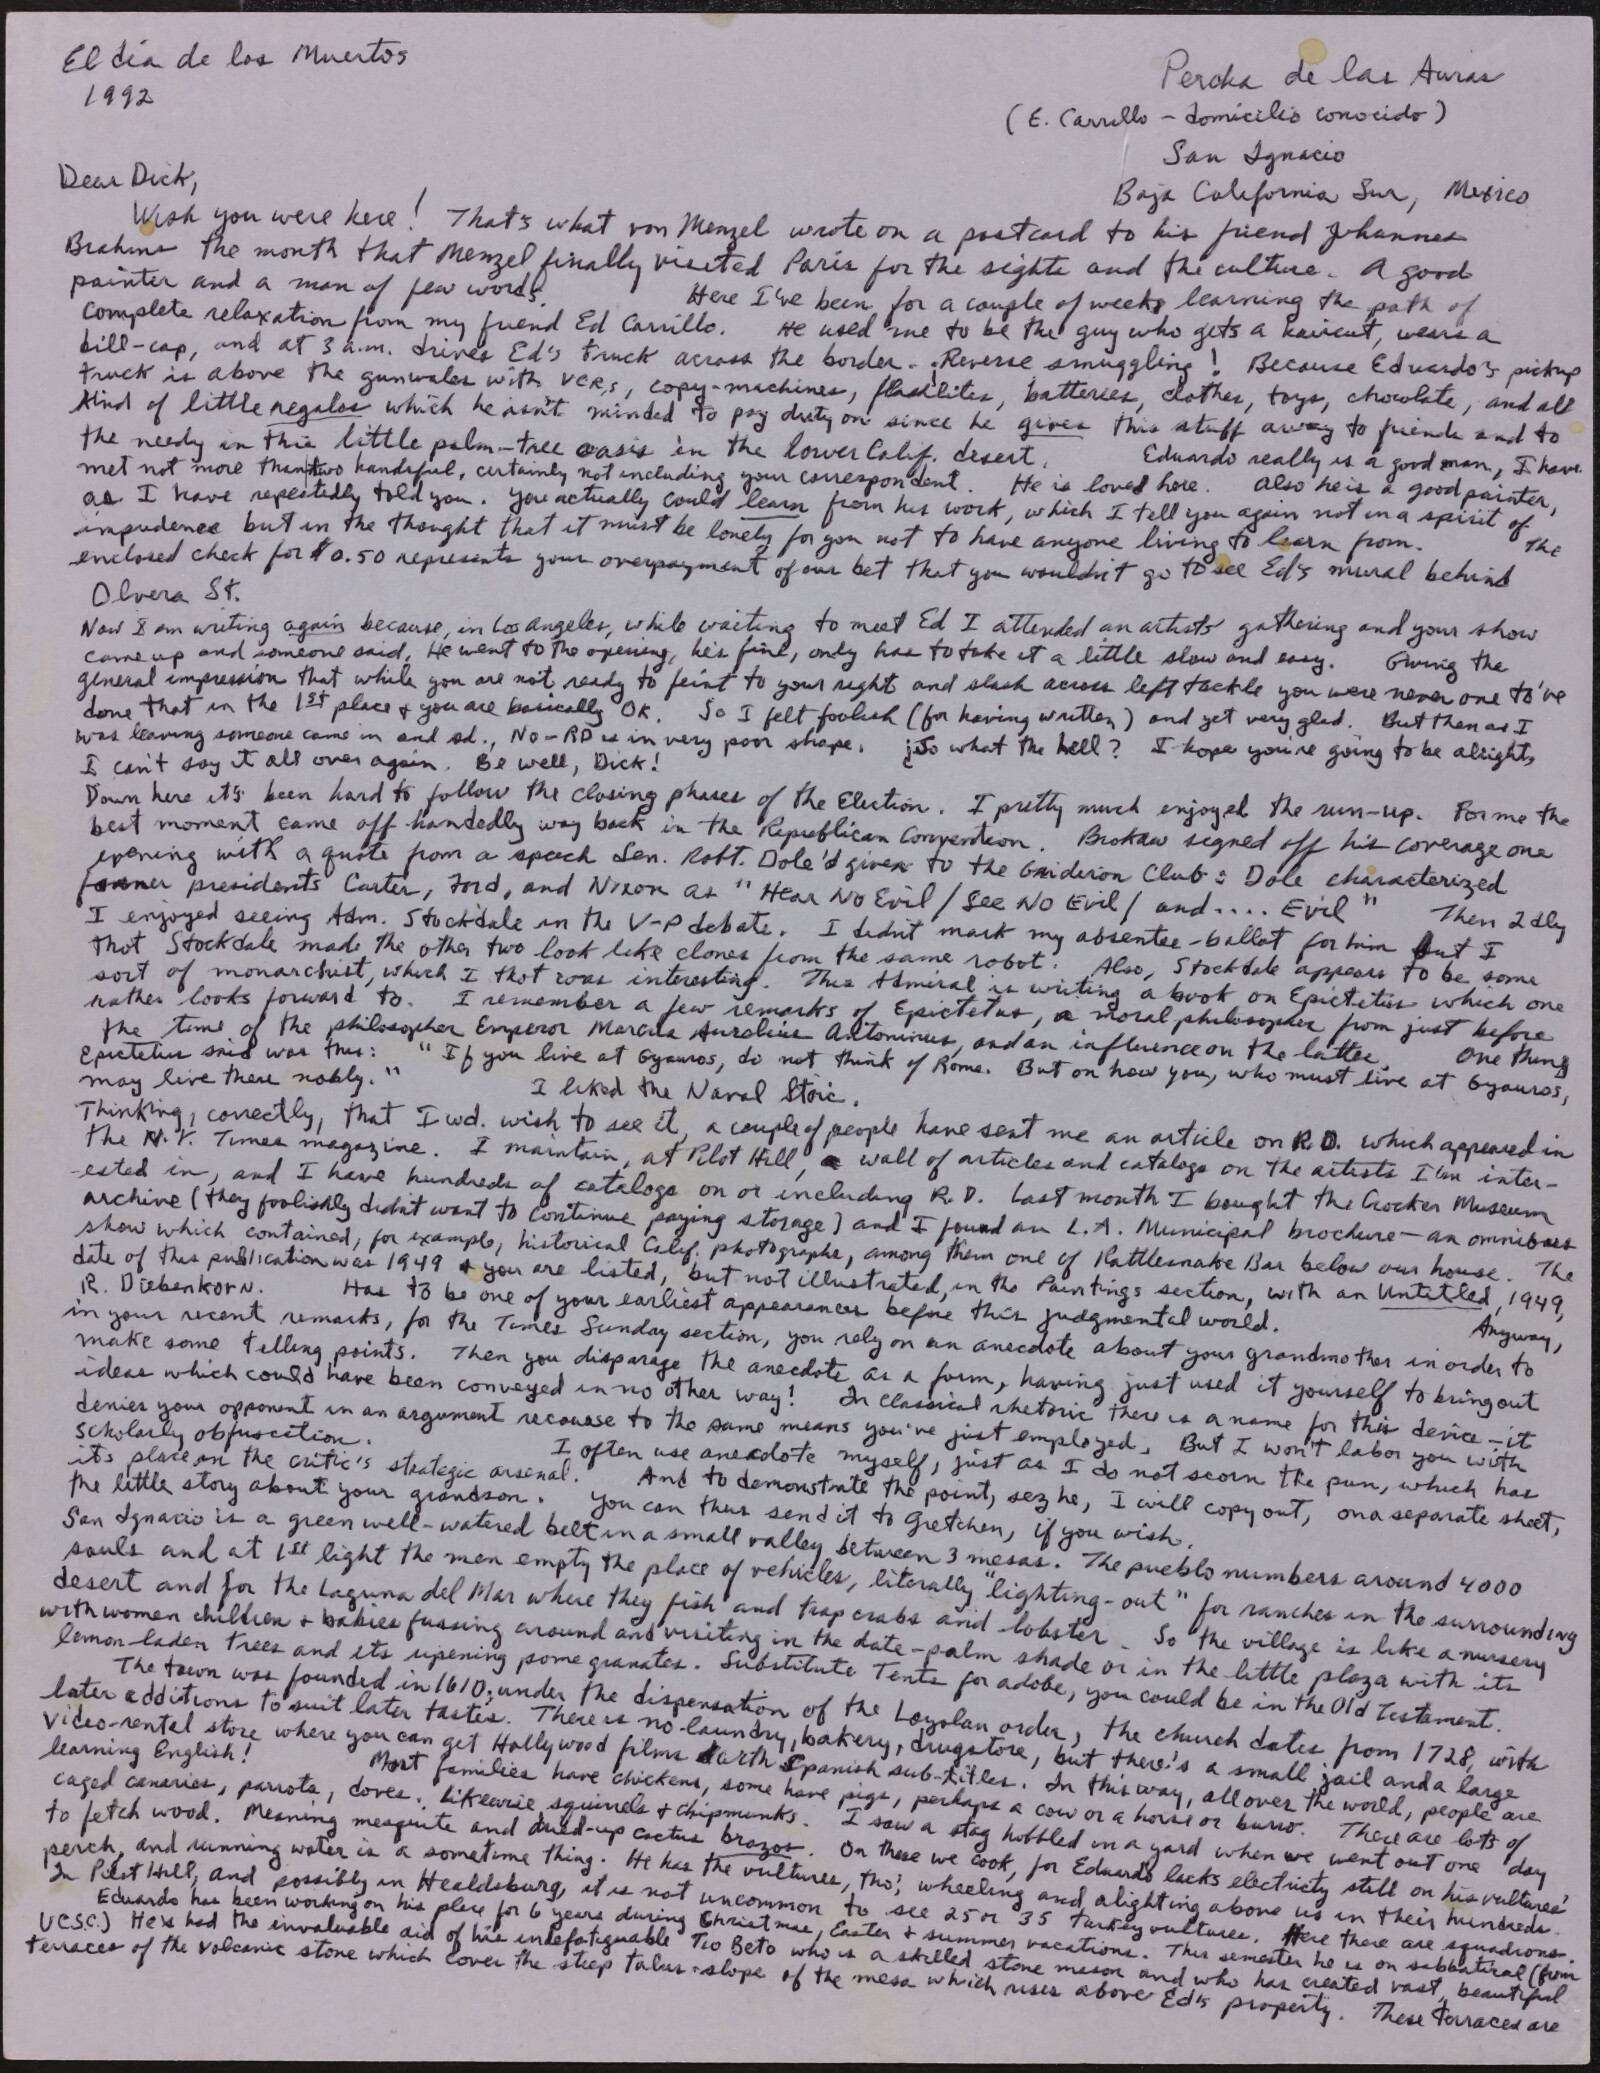 El día de los Muertos
1992
Percha de las Auras
(E. Carrillo – domicilio conocido)
San Ignacio
Baja California Sur, Mexico
Dear Dick,
Wish you were here! That's what von Menzel wrote on a postcard to his friend Johannes
Brahms the month that Menzel finally visited Paris for the sights and the culture. A good
painter and a man of few words. Here I've been for a couple of weeks learning the path of
complete relaxation from my friend Ed Carrillo. He used me to be the guy who gets a haircut, wears a
bill-cap, and at 3 a.m. drives Ed's truck across the border. ¡Reverse smuggling! Because Eduardo's pickup
truck is above the gunwales with VCRs, copy-machines, flashlites, batteries, clothes, toys, chocolate, and all
kind of little regalos which he isn't minded to pay duty on since he gives this stuff away to friends and to
the needy in this little palm-tree oasis in the lower Calif. desert. Eduardo really is a good man, I have
met not more than two handsful, certainly not including your correspondent. He is loved here. Also he is a good painter,
as I have repeatedly told you. You actually could learn from his work, which I tell you again not in a spirit of
impudence but in the thought that it must be lonely for you not to have anyone living to learn from. The
enclosed check for $0.50 represents your overpayment of our bet that you wouldn't go to see Ed's mural behind
Olvera St.
Now I am writing again because, in Los Angeles, while waiting to meet Ed I attended an artists' gathering and your show
came up and someone said, He went to the opening, he's fine, only has to take it a little slow and easy. Giving the
general impression that while you are not ready to feint to your right and slash across left tackle you were never one to've
done that in the 1st place & you are basically OK. So I felt foolish (for having written) and yet very glad. But then as I
was leaving someone came in and sd., No – RD is in very poor shape. ¿So what the hell? I hope you're going to be allright,
I can't say it all over again. Be well, Dick!
Down here it's been hard to follow the closing phases of the Election. I pretty much enjoyed the run-up. For me the
best moment came off-handedly way back in the Republican Convention. Brokaw signed off his coverage one
evening with a quote from a speech Sen. Robt. Dole'd given to the Gridiron Club: Dole characterized
former presidents Carter, Ford, and Nixon as "Hear No Evil / See No Evil / and .... Evil" Then 2dly
I enjoyed seeing Adm. Stockdale in the V-P debate. I didn't mark my absentee-ballot for him but I
thot Stockdale made the other two look like clones from the same robot. Also, Stockdale appears to be some
sort of monarchist, which I thot was interesting. This Admiral is writing a book on Epictetus which one
rather looks forward to. I remember a few remarks of Epictetus, a moral philosopher from just before
the time of the philosopher Emperor Marcus Aurelius Antoninus, and an influence on the latter. One thing
Epictetus said was this: "If you live at Gyauros, do not think of Rome. But on how you, who must live at Gyauros,
may live there nobly." I liked the Naval Stoic.
Thinking, correctly, that I wd. wish to see it, a couple of people have sent me an article on R.D. which appeared in
the N.Y. Times magazine. I maintain, at Pilot Hill, a wall of articles and catalogs on the artists I'm inter-
-ested in, and I have hundreds of catalogs on or including R.D. Last month I bought the Crocker Museum
archive (they foolishly didn't want to continue paying storage) and I found an L.A. Municipal brochure – an omnibus
show which contained, for example, historical Calif. photographs, among them one of Rattlesnake Bar below our house. The
date of this publication was 1949 & you are listed, but not illustrated, in the Paintings section, with an Untitled, 1949,
R. Diebenkorn. Has to be one of your earliest appearances before this judgmental world. Anyway,
in your recent remarks, for the Times Sunday section, you rely on an anecdote about your grandmother in order to
make some telling points. Then you disparage the anecdote as a form, having just used it yourself to bring out
ideas which could have been conveyed in no other way! In classical rhetoric there is a name for this device – it
denies your opponent in an argument recourse to the same means you've just employed. But I won't labor you with
scholarly obfuscation. I often use anecdote myself, just as I do not scorn the pun, which has
its place in the critic's strategic arsenal. And to demonstrate the point, sez he, I will copy out, on a separate sheet,
the little story about your grandson. You can thus send it to Gretchen, if you wish.
San Ignacio is a green well-watered belt in a small valley between 3 mesas. The pueblo numbers around 4000
souls and at 1st light the men empty the place of vehicles, literally "lighting-out" for ranches in the surrounding
desert and for the Laguna del Mar where they fish and trap crabs and lobster. So the village is like a nursery
with women children & babies fussing around and visiting in the date-palm shade or in the little plaza with its
lemon-laden trees and its ripening pomegranates. Substitute Tents for adobe, you could be in the Old Testament.
The town was founded in 1610; under the dispensation of the Loyolan order, the church dates from 1728, with
later additions to suit later tastes. There is no laundry, bakery, drugstore, but there's a small jail and a large
video-rental store where you can get Hollywood films with Spanish sub-titles. In this way, all over the world, people are
learning English! Most families have chickens, some have pigs, perhaps a cow or a horse or burro. There are lots of
caged canaries, parrots, doves. Likewise squirrels & chipmunks. I saw a stag hobbled in a yard when we went out one day
to fetch wood. Meaning mesquite and dried-up cactus brazos. On these we cook, for Eduardo lacks electricity still on his vultures'
perch, and running water is a sometime thing. He has the vultures, tho', wheeling and alighting above us in their hundreds.
In Pilot Hill, and possibly in Healdsburg, it is not uncommon to see 25 or 35 turkey vultures. Here there are squadrons.
Eduardo has been working on his place for 6 years during Christmas, Easter & summer vacations. This semester he is on sabbatical (from
UCSC.) He's had the invaluable aid of his indefatiguable Tio Beto who is a skilled stone mason and who has created vast, beautiful
terraces of the volcanic stone which cover the steep talus-slope of the mesa which rises above Ed's property. These terraces are